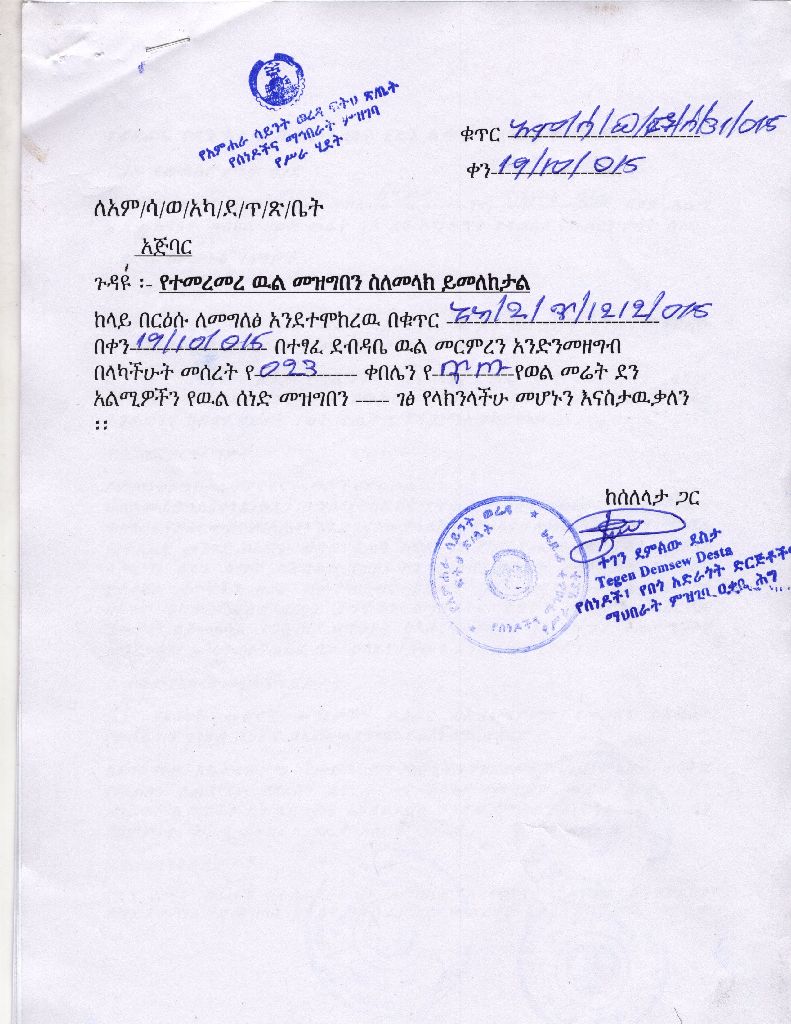 የአምሐራ ሳይንት ወረዳ ፍትህ ጽ/ቤት
የሰነዶችና ማኅበራት ምዝገባ
የሥራ ሂደት
ቁጥር
ቀን 19/10/015
ለአም/ሳ/ወ/አካ/ደ/ጥ/ጽ/ቤት
አጅባር
ጉዳዩ ፡- የተመረመረ ዉል መዝግበን ስለመላክ ይመለከታል
ከላይ በርዕሱ ለመግለፅ እንደተሞከረዉ በቁጥር /1212/015
በቀን 19/10/015 በተፃፈ ደብዳቤ ዉል መርምረን እንድንመዘግብ
በላካችሁት መሰረት የ 023 ቀበሌን የ የወል መሬት ደን
አልሚዎችን የዉል ሰነድ መዝግበን ----- ገፅ የላክንላችሁ መሆኑን እናስታዉቃለን
፡፡
ከሰለላታ ጋር
ትገን ደምሰው ደስታ
Tegen Demsew Desta
የሰነዶች፣ የበጎ አድራጎት ድርጅቶችና
ማህበራት ምዝገባ ዐቃቢ ሕግ